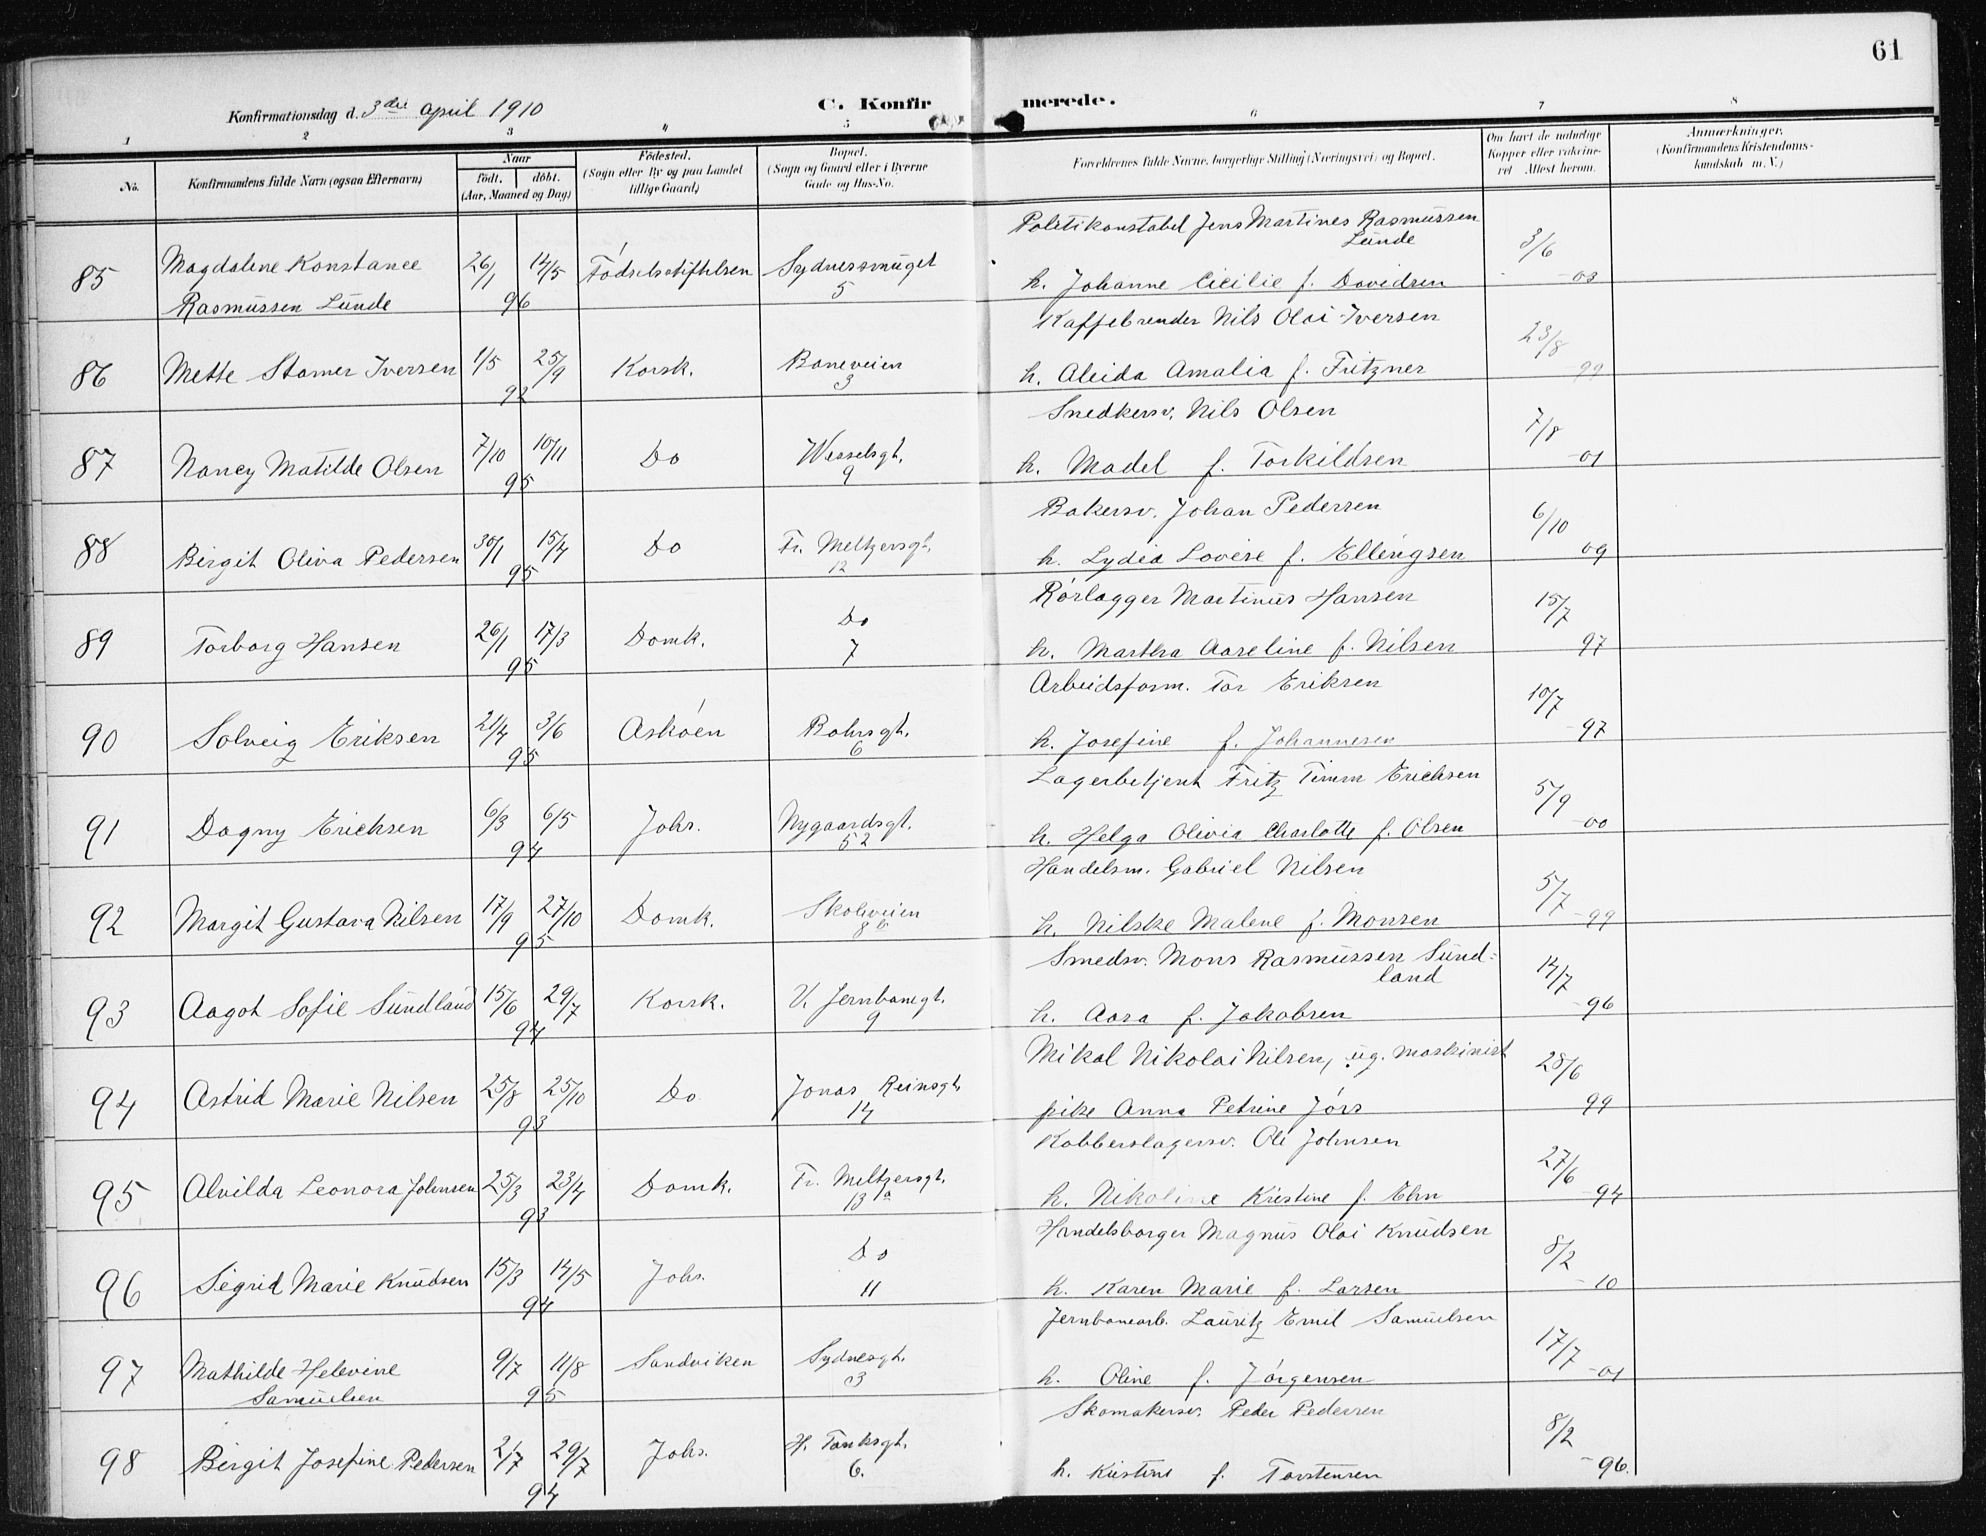 61
Konfirmationsdag d. 3die april 1910
C. Konfirmerede.
1 2 3 4 5 6 7 8
No. Konfirmandens fulde Navn (ogsaa Efternavn) Naar født. døbt. (Aar, Maaned og Dag) Fødested. (Sogn eller By og paa Landet tillige Gaard) Bopæl. (Sogn og Gaard eller i Byerne Gade og Hus-No. Forældrenes fulde Navne, borgerlige Stilling (Næringsvei) og Bopæl. Om havt de naturlige Kopper eller vaccineret Attest herom. Anmærkninger. (Konfirmandens Kristendomskundskab m. V.)
85 Magdalene Konstance Rasmussen Lunde 26/1 14/5 96 Fødselsstiftelsen Sydnessmuget 5 Politikonstabel Jens Martines Rasmussen Lunde
h. Johanne Cicilie f. Davidsen 3/6 -03
86 Mette Stamer Iversen 1/5 25/9 92 Korsk. Baneveien 3 Kaffebrender Nils Olai Iversen
h. Aleida Amalia f. Fritzner 23/8 99
87 Nancy Matilde Olsen 7/10 10/11 95 Do Wesselsgt. 9 Snedkersv. Nils Olsen
h. Madel f. Torkildsen 7/8 -01
88 Birgit Oliva Pedersen 30/1 15/4 95 Do Fr. Meltzersgt. 12 Bakersv. Johan Pedersen
h. Lydia Lovise f. Ellingsen 6/10 09
89 Torborg Hansen 26/1 17/3 95 Domk. Do 7 Rørlægger Martinus Hansen
h. Martha Aaseline f. Nilsen 15/7 97
90 Solveig Eriksen 21/4 3/6 95 Askøen Bohrsgt. 6 Arbeidsform. Tor Eriksen
h. Josefine f. Johannesen 10/7 -97
91 Dagny Erichsen 6/3 6/5 94 Johs. Nygaardsgt. 52 Lagerbetjent Fritz Timm Erichsen
h. Helga Olivia Charlotte f. Olsen 5/9 -00
92 Margit Gustava Nilsen 17/9 27/10 95 Domk. Skoleveien 8b Handelsm. Gabriel Nilsen
h. Nilske Malene f. Monsen 5/7 -99
93 Aagot Sofie Sundland 15/6 29/7 94 Korsk. V. Jernbanegt. 9 Smedsv. Mons Rasmussen Sundland
h. Aasa f. Jakobsen 14/7 -96
94 Astrid Marie Nilsen 25/8 25/10 93 Do Jonas Reinsgt. 14 Mikal Nikolai Nilsen, ug. maskinist
pike Anna Petrine Jørs 28/6 99
95 Alvilda Leonora Johnsen 25/3 23/4 93 Domk. Fr. Meltzersgt. 13a Kobberslagersv. Ole Johnsen
h. Nikoline Kristine f. Ehn 27/6 -94
96 Sigrid Marie Knudsen 15/3 14/5 94 Johs. Do 11 Handelsborger Magnus Olai Knudsen
h. Karen Marie f. Larsen 8/2 -10
97 Mathilde Helevine Samuelsen 9/7 11/8 95 Sandviken Sydnesgt. 3 Jernbanearb. Lauritz Emil Samuelsen
h. Oline f. Jørgensen 17/7 -01
98 Birgit Josefine Pedersen 2/7 29/7 94 Johs. H. Tanksgt. 6. Skomakersv. Peder Pedersen
h. Kristine f. Torstensen 8/2 -96.